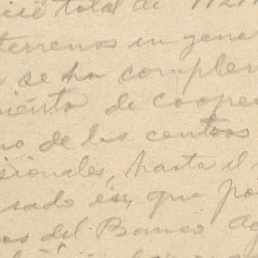 total de
terrenos en gene
se ha complem
miento de cooper
no de los centros
sionales, hasta el
sado es, que po
os del Banco Ag